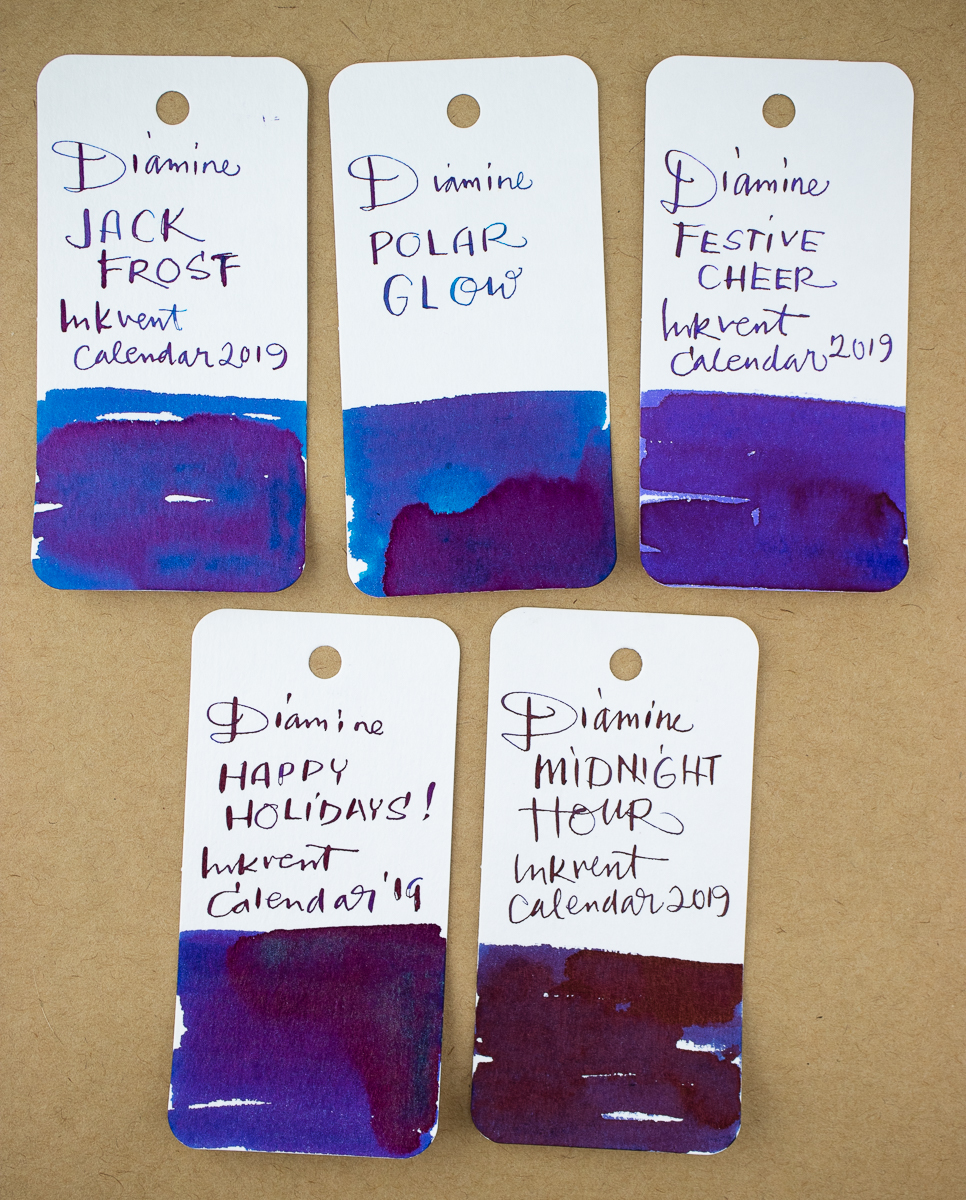 Diamine
JACK
FROST
Inkvent
Calendar 2019
Diamine
POLAR
GLOW
Diamine
FESTIVE
CHEER
Inkvent
Calendar '2019
Diamine
HAPPY
HOLIDAYS!
Inkvent
Calendar '19
Diamine
MIDNIGHT
HOUR
Inkvent
Calendar 2019